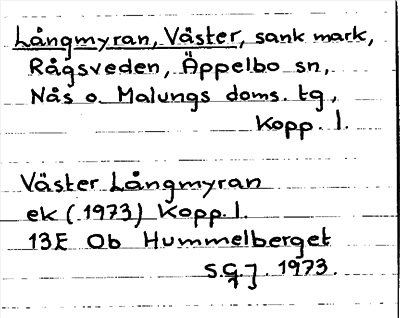 Långmyran, Väster, sank mark,
Rågsveden, Äppelbo sn,
Nås o. Malungs doms. tg,
Kopp. l.
Väster Långmyran
ek (1973) Kopp. l.
13E 0b Hummelberget
S.G.J. 1973.